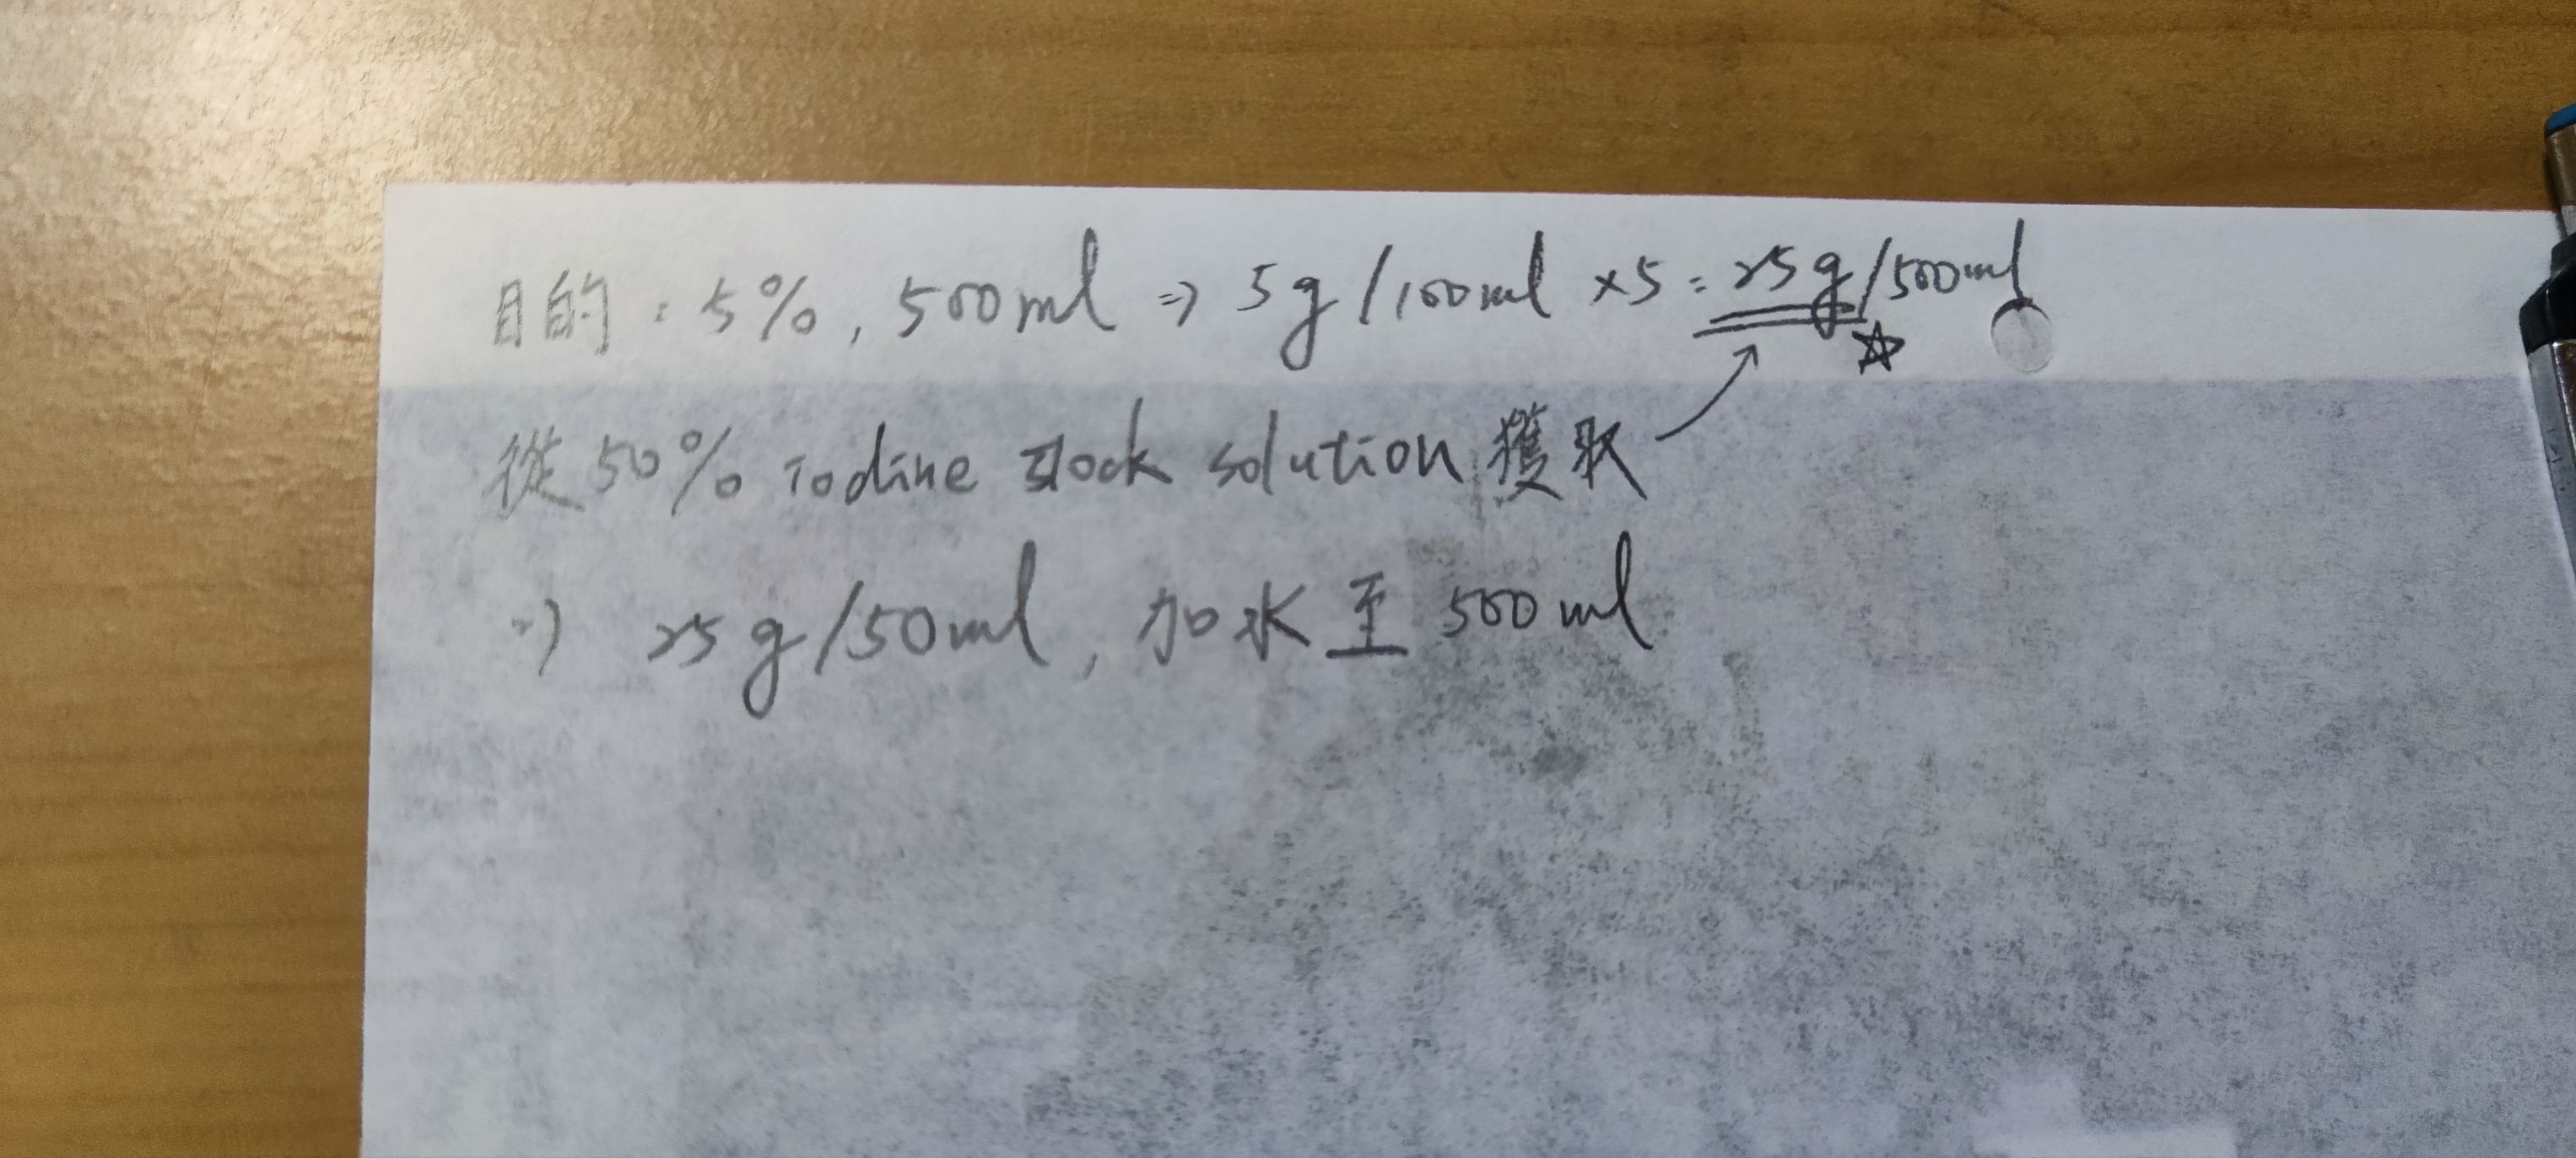 目的：5%, 500ml ⇒ 5g/100ml ×5 = 25g/500ml ☆
從50% iodine stock solution 獲取
⇒ 25g/50ml, 加水至500ml